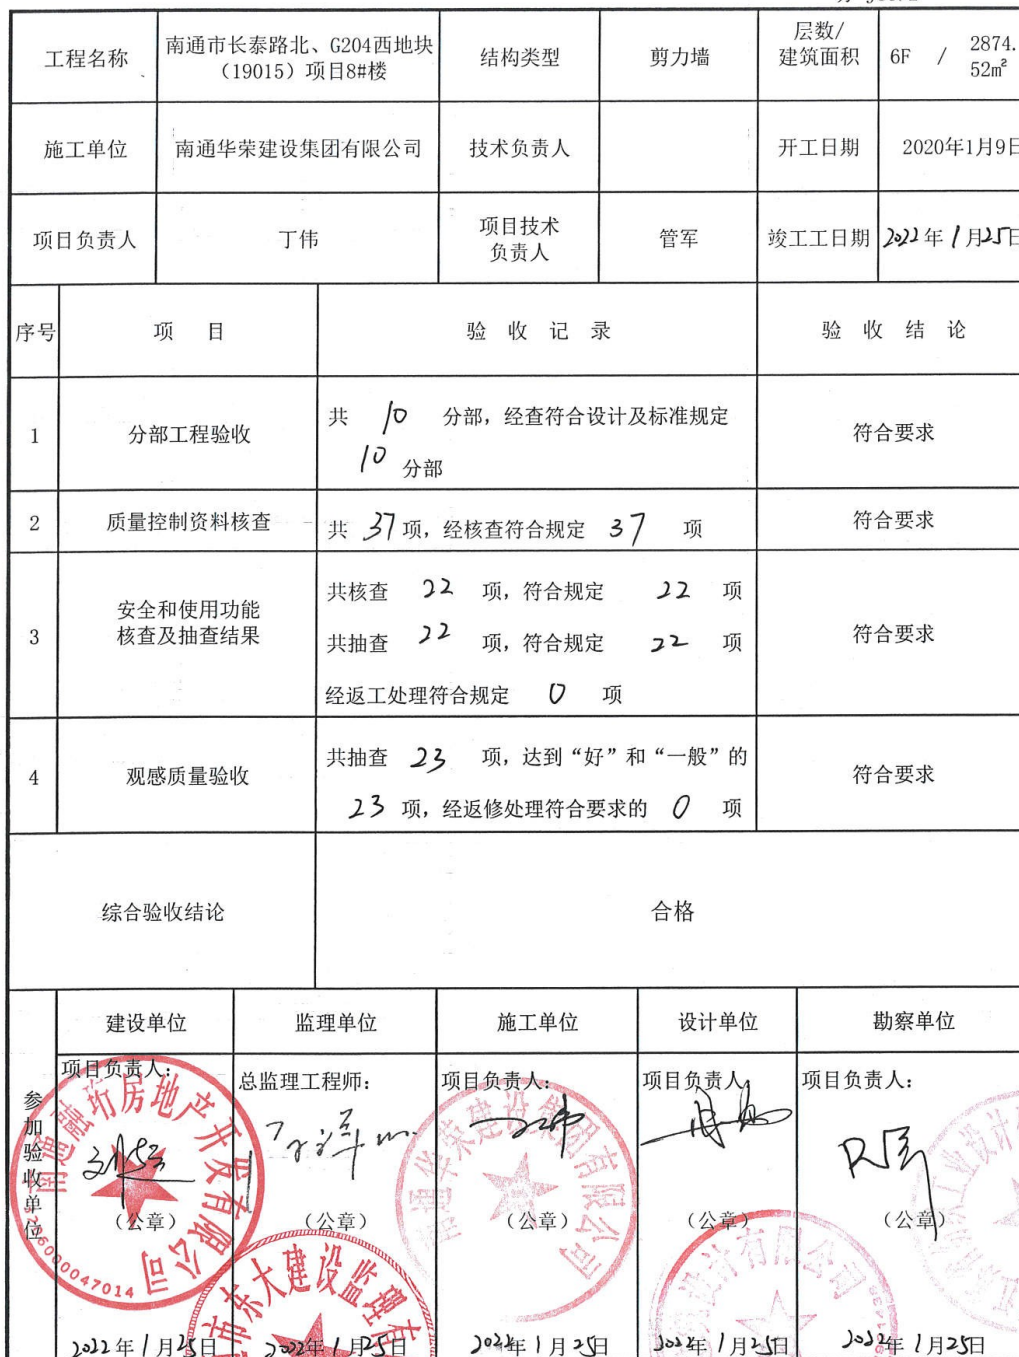 工程名称
南通市长泰路北、G204西地块
（19015）项目8#楼
结构类型
剪力墙
层数/
建筑面积
6F / 2874.
52m²
施工单位
南通华荣建设集团有限公司
技术负责人
开工日期
2020年1月9日
项目负责人
丁伟
项目技术
负责人
管军
竣工工日期
2022年1月25日
序号
项 目
验 收 记 录
验 收 结 论
1
分部工程验收
共 10 分部，经查符合设计及标准规定
10 分部
符合要求
2
质量控制资料核查
共 37 项，经核查符合规定 37 项
符合要求
3
安全和使用功能
核查及抽查结果
共核查 22 项，符合规定 22 项
共抽查 22 项，符合规定 22 项
经返工处理符合规定 0 项
符合要求
4
观感质量验收
共抽查 23 项，达到“好”和“一般”的
23 项，经返修处理符合要求的 0 项
符合要求
综合验收结论
合格
参加验收单位
建设单位
监理单位
施工单位
设计单位
勘察单位
项目负责人：
总监理工程师：
项目负责人：
项目负责人：
项目负责人：
南通融珩房地产开发有限公司
南通华荣建设集团有限公司
（公章）
（公章）
（公章）
（公章）
（公章）
市东大建设监理有
设计有限公司
2022年1月25日
2022年1月25日
2022年1月25日
2022年1月25日
2022年1月25日